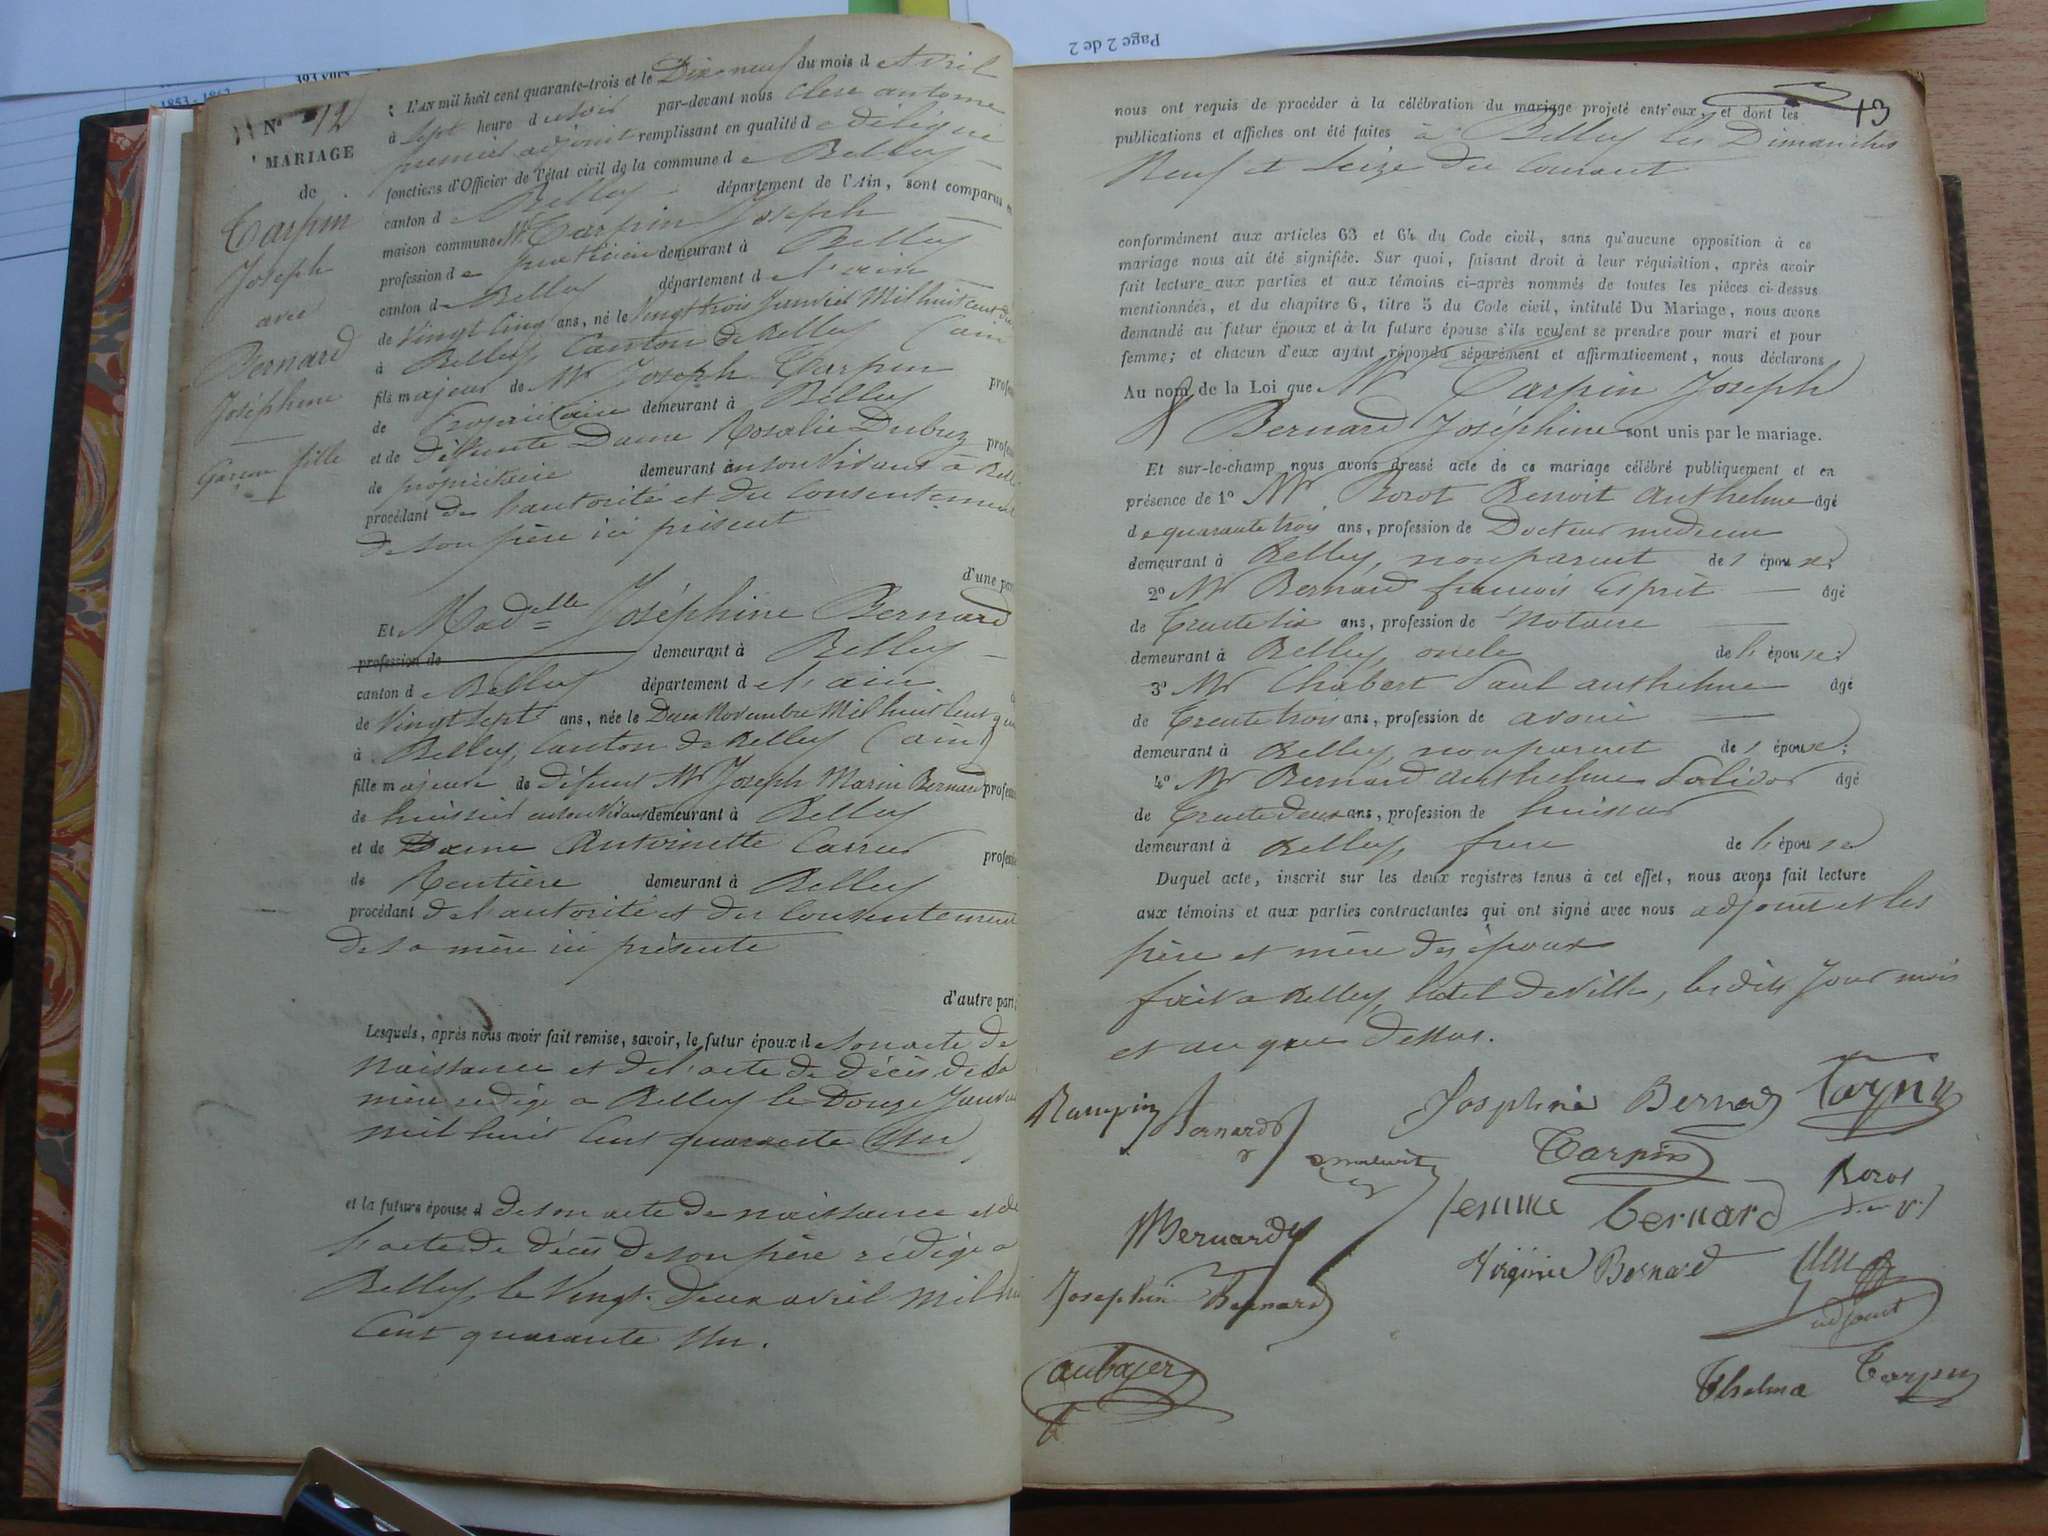 Page 2 de 2
393 vues
1853 - 1862
N° 12
MARIAGE
de
Carpin
Joseph
avec
Bernard
Joséphine
Garçon fille
L'AN mil huit cent quarante-trois et le Dix neuf du mois d'Avril
à sept heure du soir par-devant nous Clerc antoine
premier adjoint remplissant en qualité de délégué
fonctions d'Officier de l'état civil de la commune de Belley
canton de Belley département de l'Ain, sont comparus en
maison commune Mr Carpin Joseph
profession de praticien demeurant à Belley
canton de Belley département de l'ain
de Vingt Cinq ans, né le Vingt trois Janvier Mil huit cent
à Belley, Canton de Belley (ain
fils majeur de Mr Joseph Carpin profes
de Propriétaire demeurant à Belley
et de défunte Dame Rosalie Dubuz profes
de propriétaire demeurant en son vivant à Belley
procédant de l'autorité et du Consentement
de son père ici présent
d'une part
Et Madelle Joséphine Bernard
profession de demeurant à Belley
canton de Belley département de l'ain
de Vingt sept ans, née le Deux Novembre Mil huit Cent
à Belley, Canton de Belley (ain)
fille majeure de défunt Mr Joseph Marin Bernard profess
de huissier en son vivant demeurant à Belley
et de Dame Antoinette Carrier profess
de Rentière demeurant à Belley
procédant de l'autorité et du Consentement
de sa mère ici présente
d'autre part;
Lesquels, après nous avoir fait remise, savoir, le futur époux de son acte de
Naissance et de l'acte de décès de sa
mère rédigé a Belley le Douze Janvier
mil huit Cent quarante Un
et la future épouse d de son acte de naissance et de
l'acte de décès de son père rédigé a
Belley, le Vingt-deux avril mil
Cent quarante Un.
13
nous ont requis de procéder à la célébration du mariage projeté entr'eux, et dont les
publications et affiches ont été faites à Belley les Dimanches
Neuf et Seize du Courant
conformément aux articles 63 et 64 du Code civil, sans qu'aucune opposition à ce
mariage nous ait été signifiée. Sur quoi, faisant droit à leur réquisition, après avoir
fait lecture aux parties et aux témoins ci-après nommés de toutes les pièces ci-dessus
mentionnées, et du chapitre 6, titre 5 du Code civil, intitulé Du Mariage, nous avons
demandé au futur époux et à la future épouse s'ils veulent se prendre pour mari et pour
femme; et chacun d'eux ayant répondu séparément et affirmativement, nous déclarons
Au nom de la Loi que Mr Carpin Joseph
& Bernard Joséphine sont unis par le mariage.
Et sur-le-champ nous avons dressé acte de ce mariage célébré publiquement et en
présence de 1° Mr Rozot Benoit Anthelme âgé
de quarante trois ans, profession de Docteur médecin
demeurant à Belley, non parent de l'épouse;
2° Mr Bernard françois Esprit âgé
de Trente six ans, profession de Notaire
demeurant à Belley, oncle de l'épouse;
3° Mr Chabert Paul anthelme âgé
de Trente trois ans, profession de avoué
demeurant à Belley, non parent de l'épouse;
4° Mr Bernard Anthelme âgé
de Trente deux ans, profession de huissier
demeurant à Belley, frère de l'épouse
Duquel acte, inscrit sur les deux registres tenus à cet effet, nous avons fait lecture
aux témoins et aux parties contractantes qui ont signé avec nous adjoint et les
père et mère des époux
fait a Belley, hotel de Ville, les dits Jour mois
et an que dessus.
Rampin Bernard Josephine Bernard Carpin
Carpin Rozot
Bernard femme bernard
Josephine Bernard Virginie Bernard
adjoint
aubager Thelma Carpin